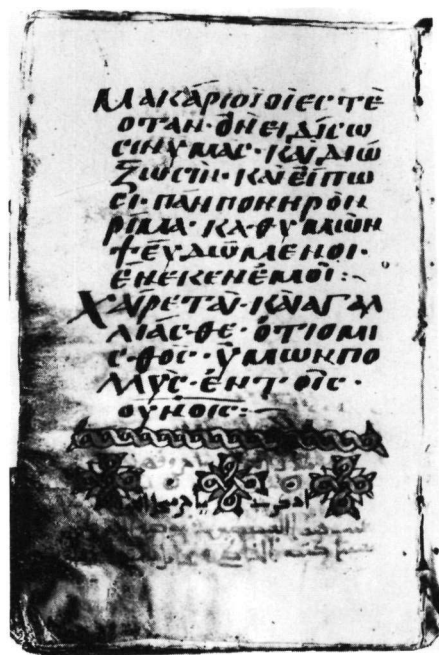 ΜΑΚΑΡΙΟΙΟΙΕϹΤΕ
ΟΤΑΝ·ΟΝΕΙΔΙϹΩ
ϹΙΝΥΜΑϹ·ΚΑΙΔΙΩ
ΞΩϹΙΝ·ΚΑΙΕΙΠΩ
ϹΙ·ΠΑΝΠΟΝΗΡΟΝ
ΡΙΜΑ·ΚΑ·ΘΥΜΩΝ
ΨΕΥΔΩΜΕΝΟΙ·
ΕΝΕΚΕΝΕΜΟΙ:~
ΧΑΙΡΕΤΑΙ·ΚΑΙΑΓΑΛ
ΛΙΑϹ·ΘΕ·ΟΤΙΟΜΙ
Ϲ·ΘΟϹ·ΥΜΩΝΠΟ
ΛΛΥϹ·ΕΝΤ·ΟΙϹ·
ΟΥΝΟΙϹ:~